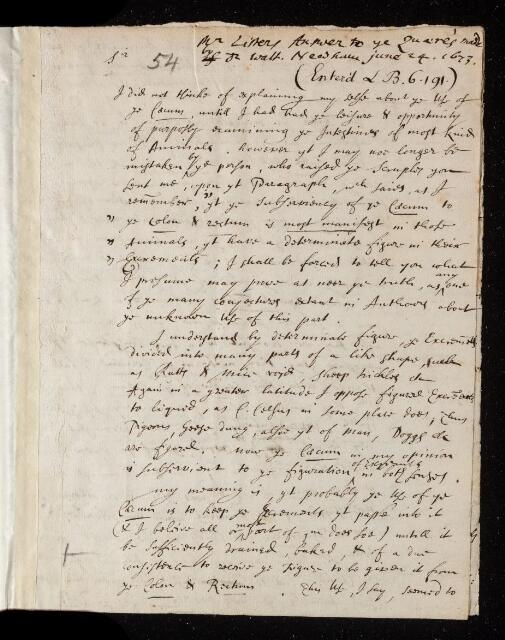 Mr Listers Answer to ye Quærys made
by Dr Walt. Needham june 24. 1673.
Sr 54
(Enterd L B. 6. 191.)
I did not thinke of explaining my selfe about ye Use of
ye Cæcum, untill I had had ye leisure & opportunity
of purposly examining ye Intestines of most kinds
of Animals. however yt I may noe longer be
mistaken by ye person, who raised ye scruples you
sent me, upon yt Paragraph, wch saies, as I
remember, yt ye subserviency of ye Cæcum to
" ye Colon & rectum is most manifest in those
" Animals, yt have a determinate figure in their
" Excrements; I shall be forced to tell you what
I presume may prove as neer ye truth, as any one
of ye many conjectures extant in Authors about
ye unknown Use of this part.
I understand by determinate figure, ye Excrements
divided into many parts of a like shape, such
as Ratts & Mice void, sheep trickles &c
Again in a greater latitude I oppose figured Excrements
to liquid, as C. Celsus in some place does; thus
Pigeons, Geese dung, alsoe yt of man, Doggs &c
are figured. Now ye Cæcum in my opinion
is subservient to ye figuration of Excrements in both senses.
my meaning is, yt probably ye Use of ye
Cæcum is to keep ye Excrements yt passe into it
(& I beleive all or most part of ym does soe) untill it
be sufficiently drained, baked, & of a due
consistence to receive ye figure to be given it from
ye Colon & Rectum. This Use, I say, seemed to